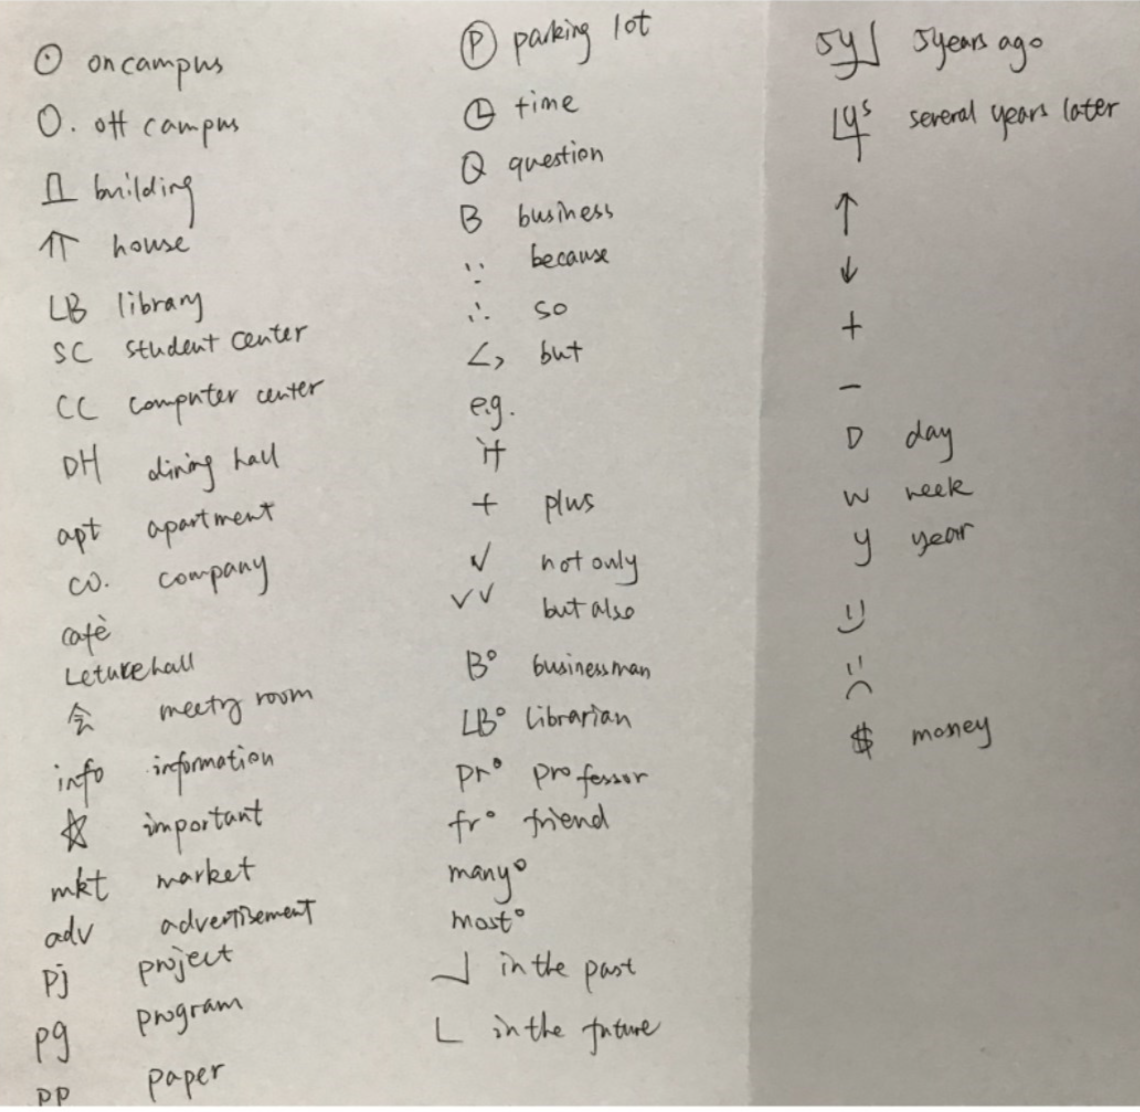 ⊙ on campus
O. off campus
building
house
LB library
SC student center
CC computer center
DH dining hall
apt apartment
co. company
cafè
Leturehall
会 meetng room
info information
☆ important
mkt market
adv advertisement
pj project
pg program
pp paper
Ⓟ parking lot
time
Q question
B business
∵ because
∴ so
<> but
e.g.
if
+ plus
✓ not only
✓✓ but also
B° businessman
LB° librarian
pr° professor
fr° friend
many°
most°
⏌ in the past
L in the future
5y⏌ 5years ago
Lyˢ several years later
↑
↓
+
−
D day
w week
y year
$ money